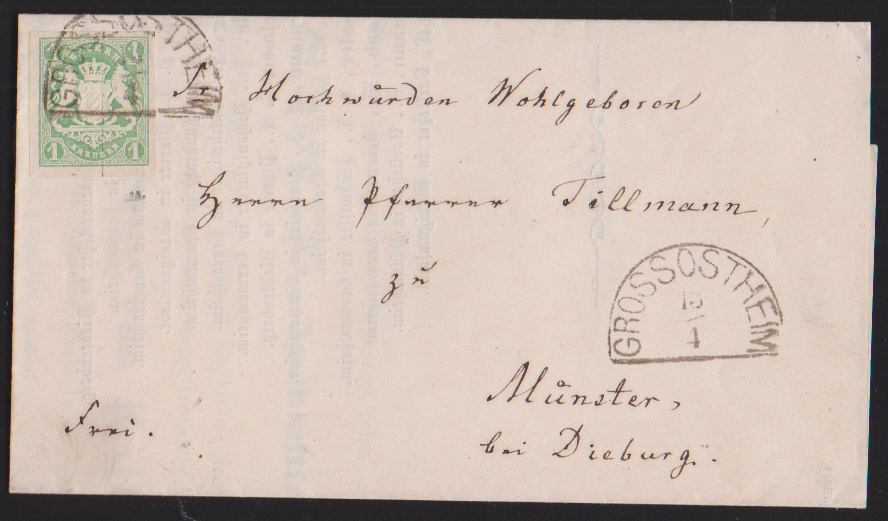 1 KREUZER 1
GROSSOSTHEIM
1 KREUZER 1
Sr Hochwürden Wohlgeboren
Herrn Pfarrer Tillmann,
zu
GROSSOSTHEIM
13
4
Münster,
bei Dieburg.
Frei.